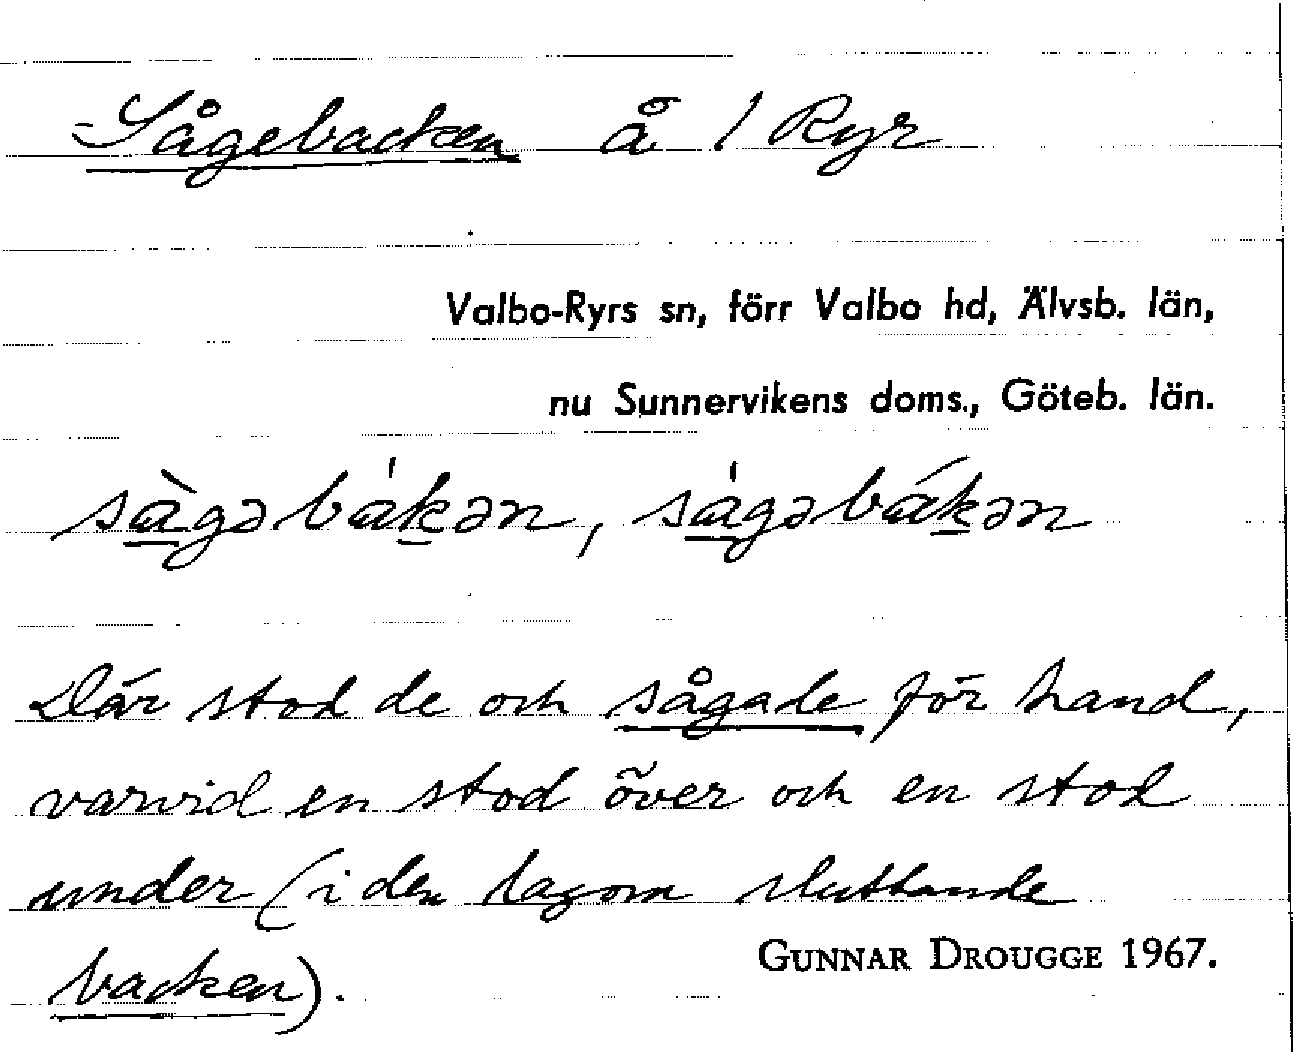 Sågebacken å 1 Ryr
Valbo-Ryrs sn, förr Valbo hd, Älvsb. län,
nu Sunnervikens doms., Göteb. län.
sàgəbákən, ságəbákən
Där stod de och sågade för hand,
varvid en stod över och en stod
under (i den lagom sluttande
backen).
GUNNAR DROUGGE 1967.